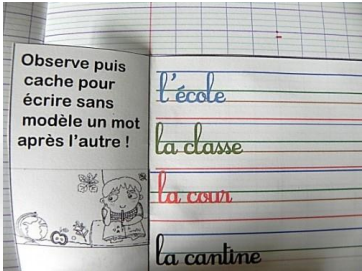 Observe puis
cache pour
écrire sans
modèle un mot
après l'autre !
l'école
la classe
la cour
la cantine